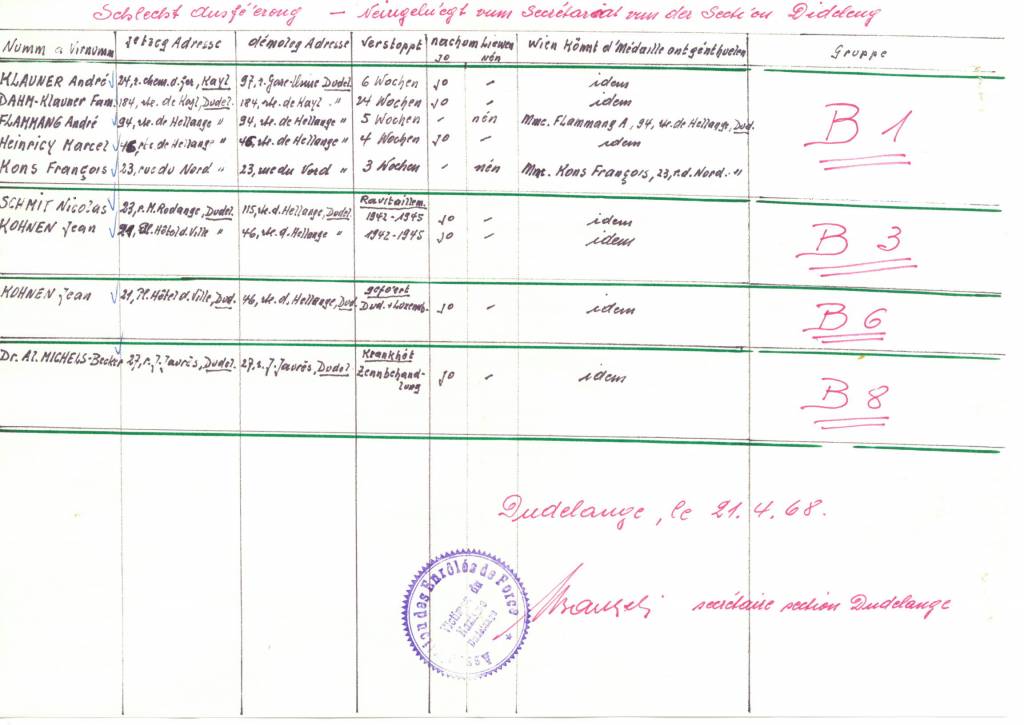 Schlecht Ausgefé'erong — Neingeluegt vum Secrétariat vun der Secti'on Dideleng
Numm a Virnumm jetzeg Adresse démoleg Adresse verstoppt nach um Liewen Wien könnt d'Médaille ontgénthuelen Gruppe
jo nén
KLAUNER André 24, r. chem. d. fer, Kayl 97, r. Gare-Usine Dudel. 6 Wochen jo - idem
DAHM-Klauner Fam. 184, rte. de Kayl, Dudel. 184, rte. de Kayl. " 24 Wochen jo - idem
FLAMMANG André 94, rte. de Hellange " 94, rte. de Hellange " 5 Wochen - nén Mme. Flammang A, 94, rte. de Hellange, Dud.
B 1
Heinricy Marcel 46, rte. de Hellange " 46, rte. de Hellange " 4 Wochen jo - idem
Kons François 23, rue du Nord " 23, rue du Nord " 3 Wochen - nén Mme. Kons François, 23, r. d. Nord. "
SCHMIT Nicolas 23, r. M. Rodange, Dudel. 115, rte. d. Hellange, Dudel. Ravitaillem. 1942-1945 jo - idem
KOHNEN Jean 21, Pl. Hôtel d. Ville " 46, rte. d. Hellange " 1942-1945 jo - idem
B 3
KOHNEN Jean 21, Pl. Hôtel d. Ville, Dud. 46, rte. d. Hellange, Dud. gefo'ert Dud. + Luxemb. jo - idem
B 6
Dr. Al. MICHELS-Becker 27, r. J. Jaurès, Dudel. 27, r. J. Jaurès, Dudel Krankhét Zennbehandlung jo - idem
B 8
Dudelange, le 21.4.68.
secrétaire section Dudelange
des Enrôlés de Force
Victimes du
Nazisme
Dudelange